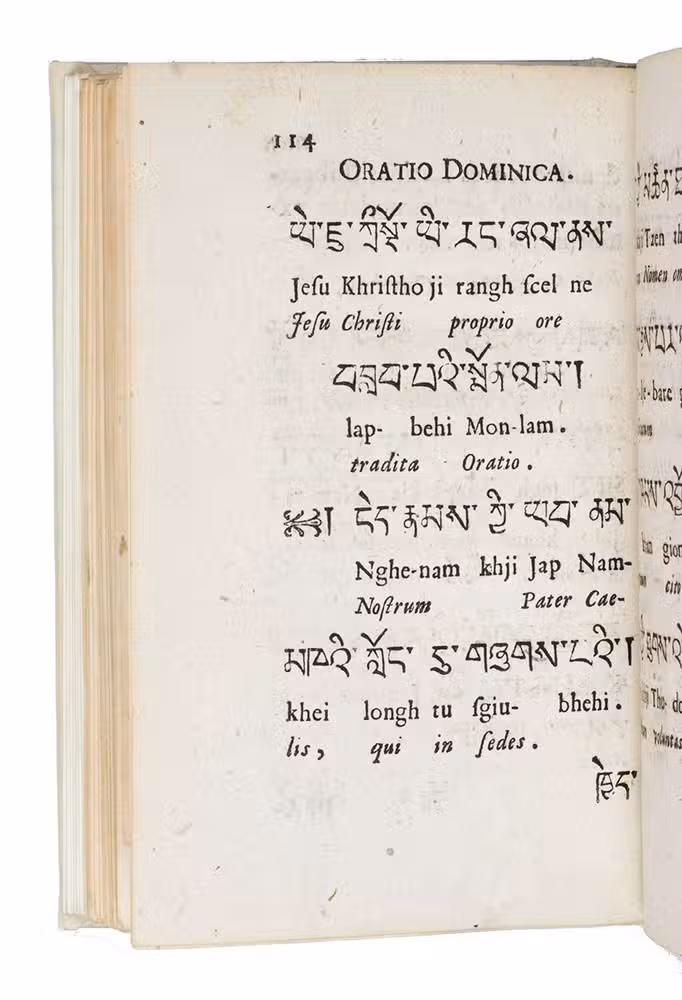 114
ORATIO DOMINICA.
ཡེ་ཛུ་ ཀྲིསྟོ་ ཡི་ རང་ཞལ་ནས་
Jeſu Khriſtho ji rangh ſcel ne
Jeſu Chriſti proprio ore
བསླབ་པའི་སྨོན་ལམ།
lap- behi Mon-lam.
tradita Oratio.
ངེད་ རྣམས་ ཀྱི་ ཡབ་ ནམ་
Nghe-nam khji Jap Nam-
Noſtrum Pater Cae-
མཁའི་ ཀློང་ དུ་ བཞུགས་པའི།
khei longh tu ſgiu- bhehi.
lis, qui in ſedes.
ཁྱེད་
Tzen
Nomen
gion
voluntas